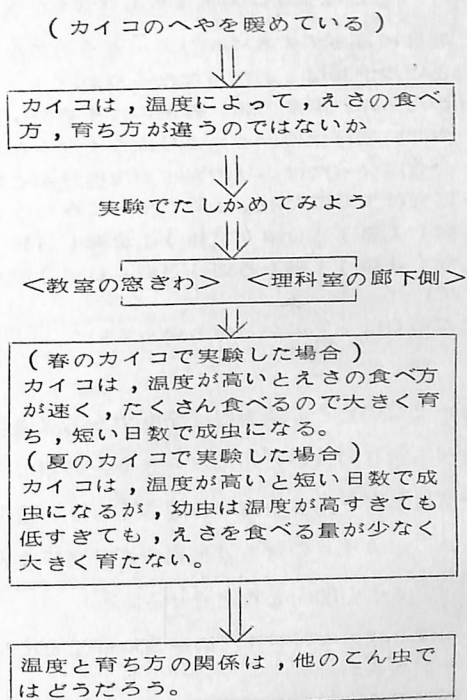 (カイコのへやを暖めている)
カイコは,温度によって,えさの食べ
方,育ち方が違うのではないか。
実験でたしかめてみよう
<教室の窓ぎわ> <理科室の廊下側>
(春のカイコで実験した場合)
カイコは,温度が高いとえさの食べ方
が速く,たくさん食べるので大きく育
ち,短い日数で成虫になる。
(夏のカイコで実験した場合)
カイコは,温度が高いと短い日数で成
虫になるが,幼虫は温度が高すぎても
低すぎても,えさを食べる量が少なく
大きく育たない。
温度と育ち方の関係は,他のこん虫で
はどうだろう。